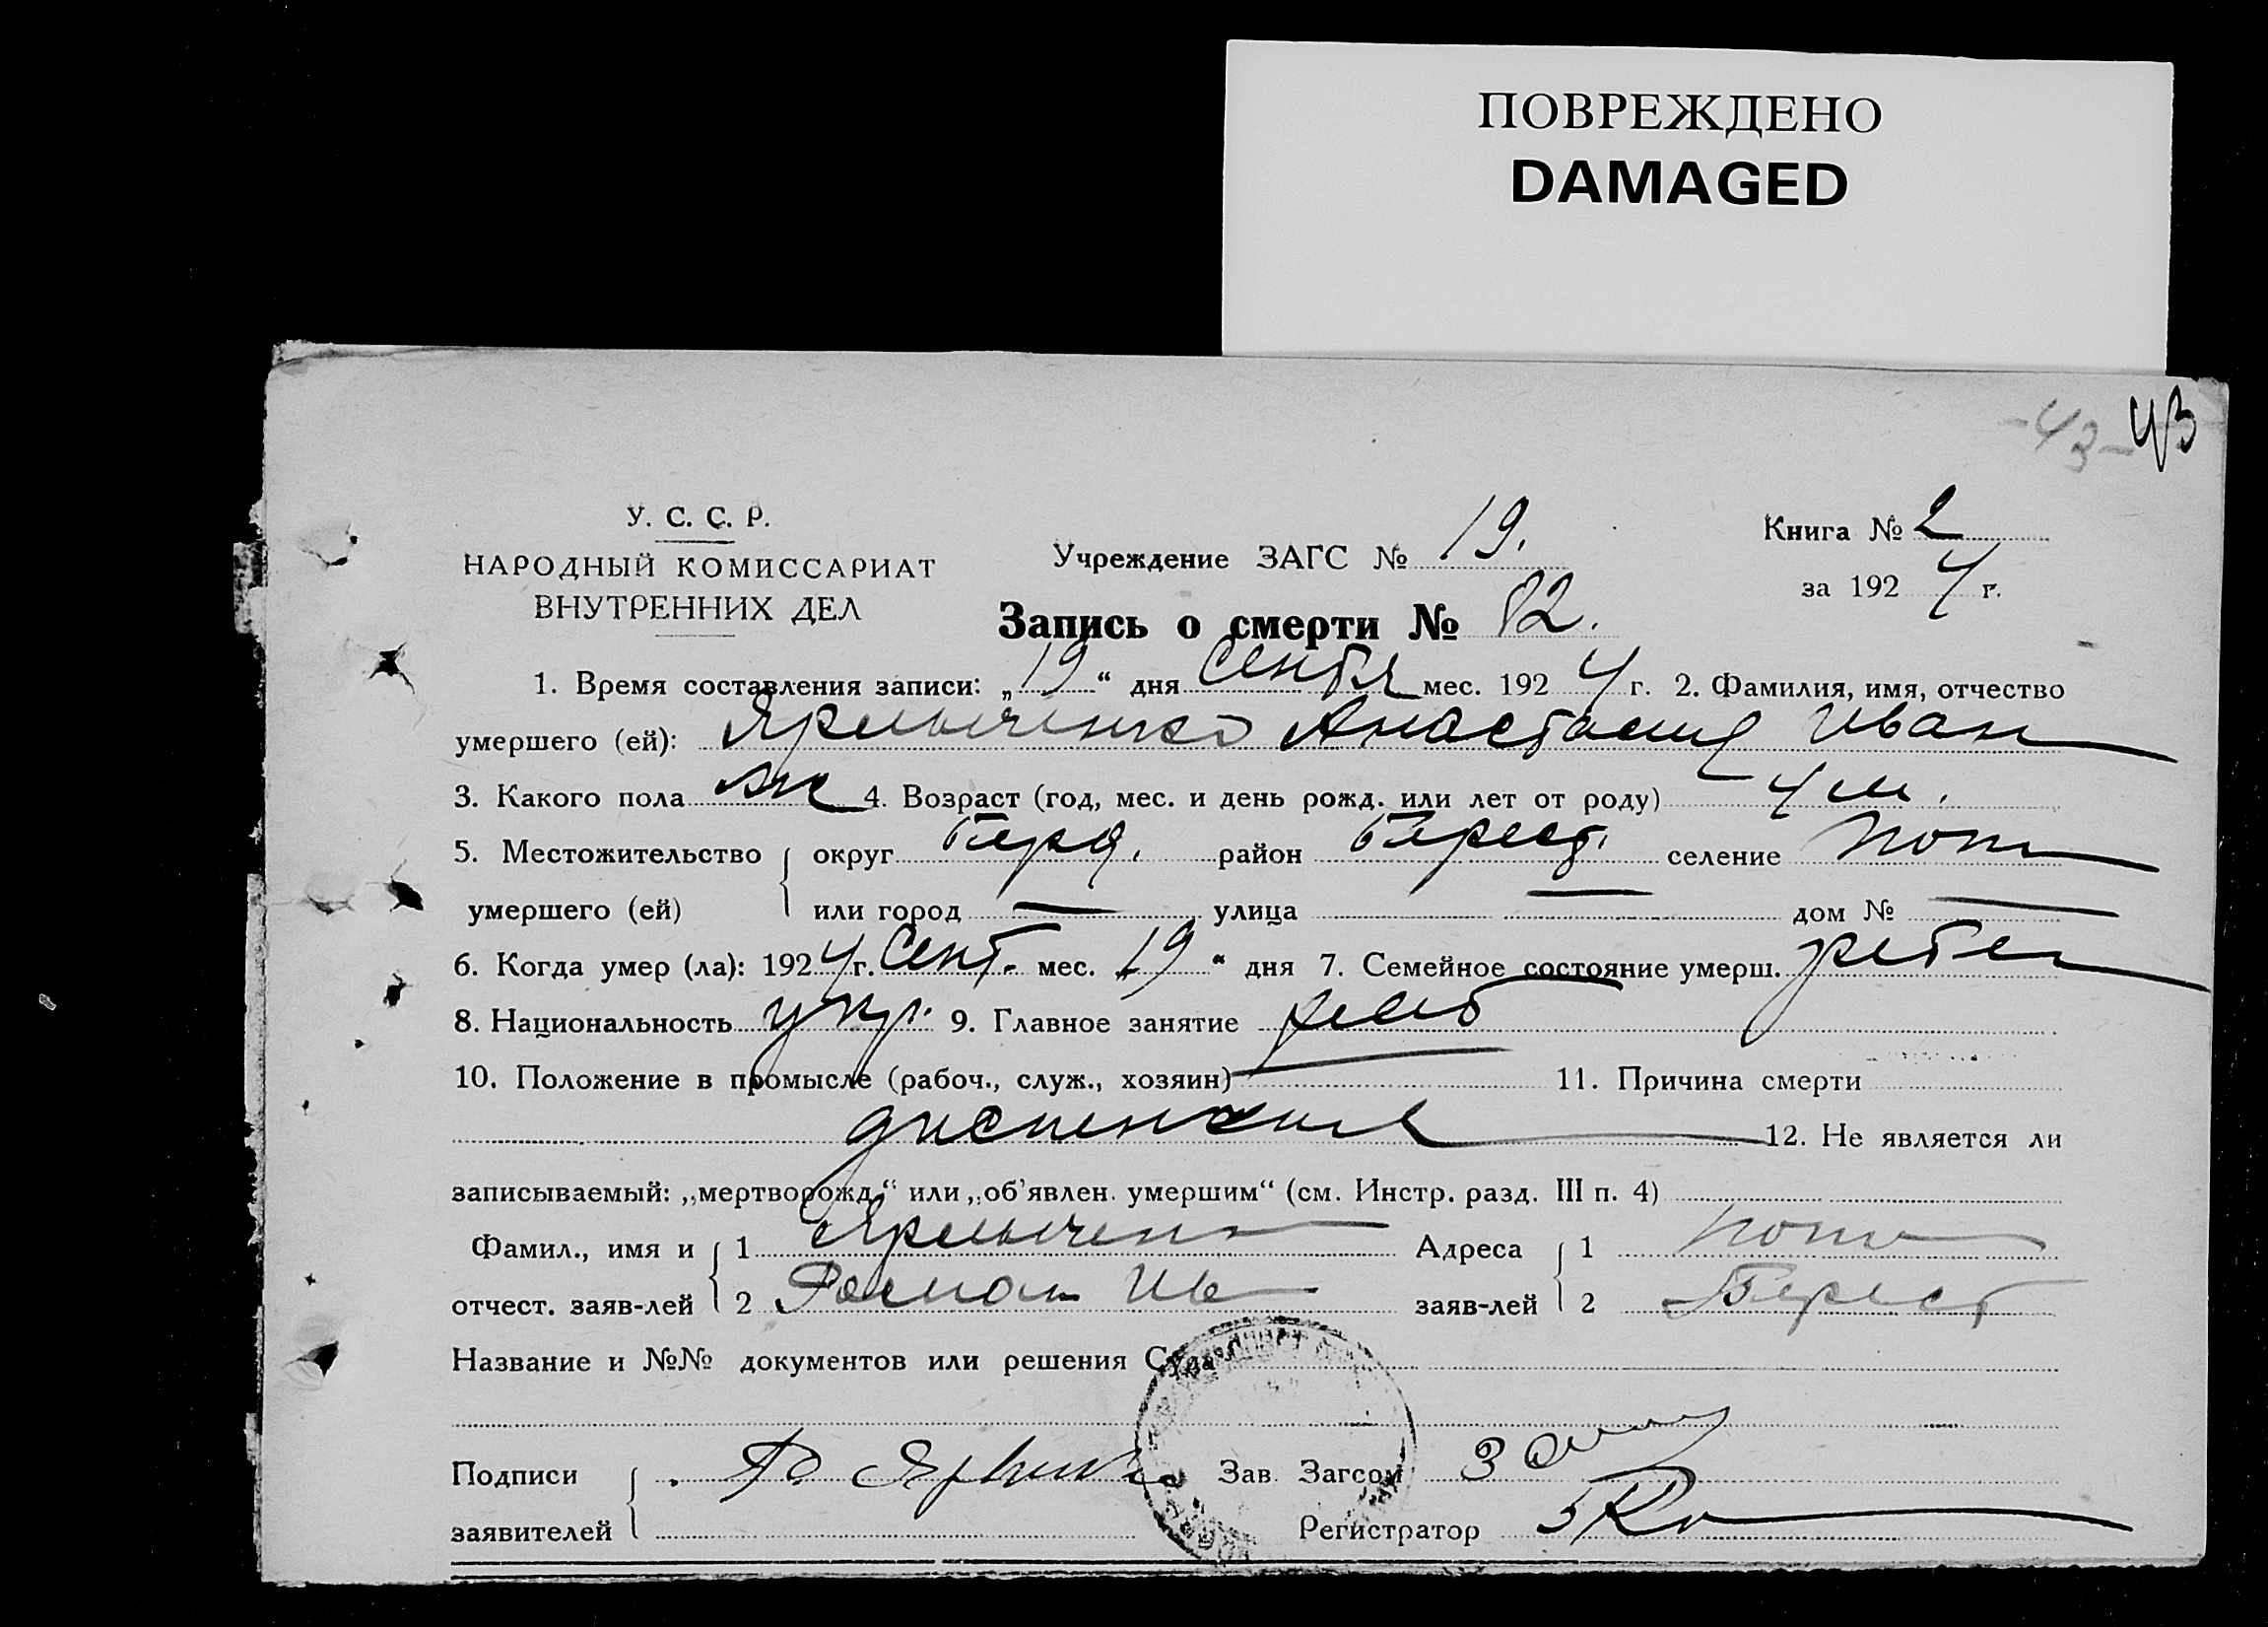 ПОВРЕЖДЕНО
DAMAGED
-43- 43
У. С. С. Р.
НАРОДНЫЙ КОМИССАРИАТ
ВНУТРЕННИХ ДЕЛ
Учреждение ЗАГС № 19.
Книга № 2
за 1924 г.
Запись о смерти № 82.
1. Время составления записи: „19“ дня Сентя мес. 1924 г. 2. Фамилия, имя, отчество
умершего (ей): Анастасия Иван
3. Какого пола ж 4. Возраст (год, мес. и день рожд. или лет от роду) 4 м.
5. Местожительство округ Берд. район Берест. селение Поп
умершего (ей) или город — улица — дом № —
6. Когда умер (ла): 1924 г. Сент. мес. „19“ дня 7. Семейное состояние умерш. ребен
8. Национальность укр. 9. Главное занятие
10. Положение в промысле (рабоч., служ., хозяин) — 11. Причина смерти
диспепсия 12. Не является ли
записываемый: „мертворожд.“ или „об’явлен. умершим“ (см. Инстр. разд. III п. 4)
Фамил., имя и 1 Адреса 1 Поп
отчест. заяв-лей 2 Роман Ив заяв-лей 2 Берест
Название и №№ документов или решения Суда
Подписи Зав. Загсом
заявителей Регистратор